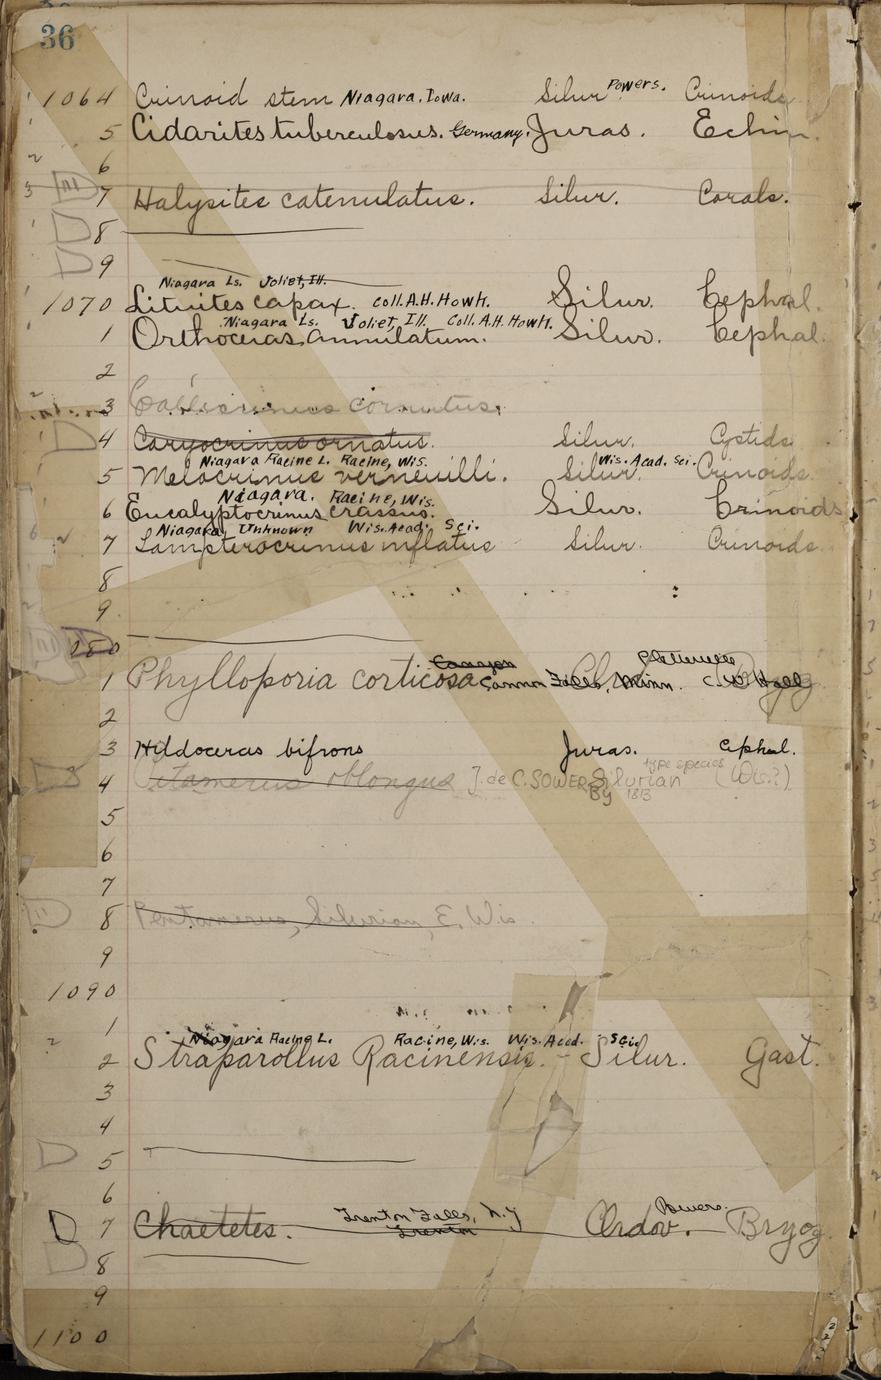 36
1064 Crinoid stem Niagara. Iowa. Silur. Powers. Crinoids
5 Cidarites tuberculosus. Germany. Juras. Echin.
6
7 Halysites catenulatus. Silur. Corals.
8
9
Niagara Ls. Joliet, Ill.
1070 Lituites capax. Coll. A.H. Howh. Silur. Cephal.
Niagara Ls. Joliet, Ill. Coll. A.H. Howh.
1 Orthoceras annulatum. Silur. Cephal.
2
3 cornutus.
4 Caryocrinus ornatus. Silur. Cystids
Niagara Racine L. Racine, Wis. Wis. Acad. Sci.
5 Melocrinus verneuilli. Silur. Crinoids
Niagara. Racine, Wis.
6 Eucalyptocrinus crassus. Silur. Crinoids
Niagara Unknown Wis. Acad. Sci.
7 Lampterocrinus inflatus Silur. Crinoids
8
9
1 Phylloporia corticosa Cannon Falls, Minn. C.W. Hall
2
3 Hildoceras bifrons Juras. Cephal.
type species
4 Pentamerus oblongus J. de C. SOWERBY 1813 Silurian (Wis.?)
5
6
7
8 Pentamerus, Silurian, E. Wis.
9
1090
1
Niagara Racine L. Racine, Wis. Wis. Acad. Sci.
2 Straparollus Racinensis. - Silur. Gast.
3
4
5
6
Trenton Falls, N.Y Powers.
7 Chaetetes. Trenton Ordov. Bryoz.
8
9
1100